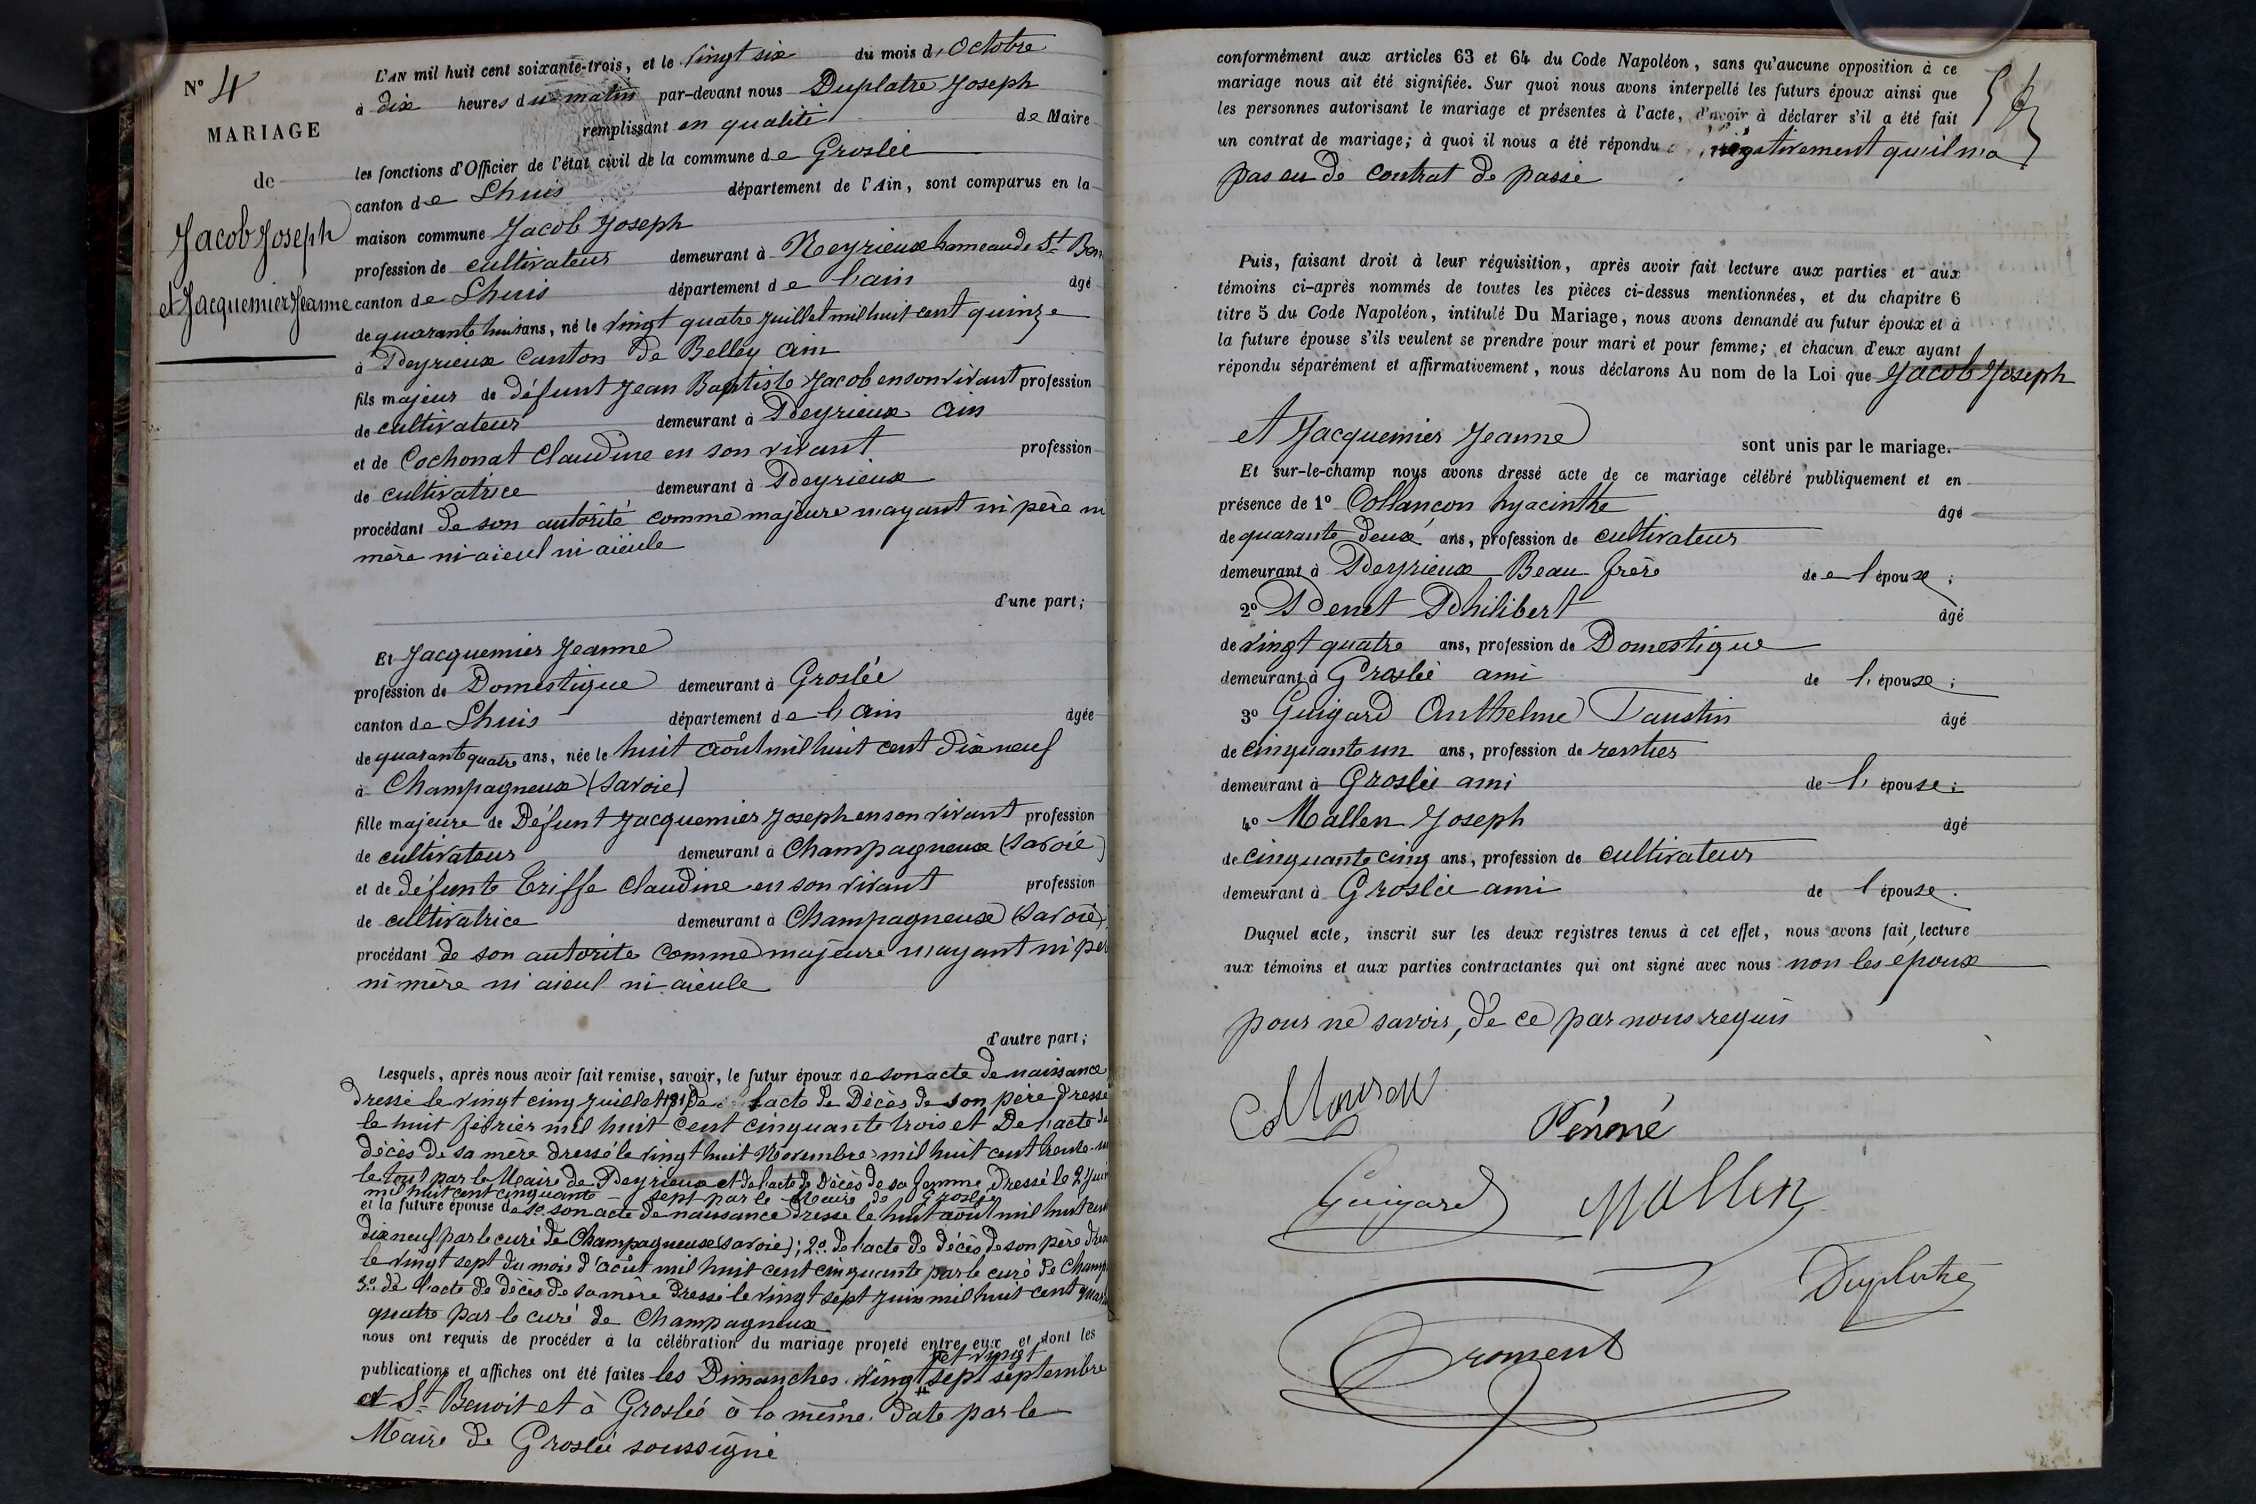 N° 4
MARIAGE
de
Jacob Joseph
et Jacquemier Jeanne
L'AN mil huit cent soixante-trois, et le vingt six du mois d'Octobre
à dix heures du matin par-devant nous Duplatre Joseph
remplissant en qualité de Maire
les fonctions d'Officier de l'état civil de la commune de Groslée
canton de Lhuis département de l'Ain, sont comparus en la
maison commune Jacob Joseph
profession de cultivateur demeurant à Neyrieux hameau de St Ben
canton de Lhuis département de l'ain âgé
de quarante huit ans, né le vingt quatre juillet mil huit cent quinze
à Peyrieux Canton de Belley Ain
fils majeur de défunt Jean Baptiste Jacob en son vivant profession
de cultivateur demeurant à Peyrieux Ain
et de Cochonat Claudine en son vivant profession
de cultivatrice demeurant à Peyrieux
procédant de son autorité comme majeure n'ayant ni père ni
mère ni aieul ni aieule
d'une part;
Et Jacquemier Jeanne
profession de Domestique demeurant à Groslée
canton de Lhuis département de l'Ain âgée
de quarante quatre ans, née le huit août mil huit cent dix neuf
à Champagneux (Savoie)
fille majeure de Défunt Jacquemier Joseph en son vivant profession
de cultivateur demeurant à Champagneux (Savoie)
et de défunte Triffe Claudine en son vivant profession
de cultivatrice demeurant à Champagneux (Savoie)
procédant de son autorité comme majeure n'ayant ni pè
ni mère ni aieul ni aieule
d'autre part;
Lesquels, après nous avoir fait remise, savoir, le futur époux de son acte de naissance
dressé le vingt cinq juillet l'acte de Décès de son père dressé
le huit février mil huit cent cinquante trois et De l'acte de
décès de sa mère dressé le vingt huit Novembre mil huit cent trente
le tout par le Maire de Peyrieux et de l'acte de Décès de sa femme Dressé le 2 juin
mil huit cent cinquante - sept par le Maire de Groslée
et la future épouse de 1° son acte de naissance dressé le huit août mil huit cent
dix neuf par le curé de Champagneux (Savoie); 2° de l'acte de décès de son père dres
le vingt sept du mois d'août mil huit cent cinquante par le curé de Champ
3° de l'acte de décès de sa mère dressé le vingt sept juin mil huit cent quar
quatre par le curé de Champagneux
nous ont requis de procéder à la célébration du mariage projeté entre eux et dont les
et vingt
publications et affiches ont été faites les Dimanches vingt sept septembre
et St Benoit et à Groslée à la même date par le
Maire de Groslée soussigné
conformément aux articles 63 et 64 du Code Napoléon, sans qu'aucune opposition à ce
mariage nous ait été signifiée. Sur quoi nous avons interpellé les futurs époux ainsi que
les personnes autorisant le mariage et présentes à l'acte, d'avoir à déclarer s'il a été fait
un contrat de mariage; à quoi il nous a été répondu négativement qu'il n'a
pas eu de contrat de passé
Puis, faisant droit à leur réquisition, après avoir fait lecture aux parties et aux
témoins ci-après nommés de toutes les pièces ci-dessus mentionnées, et du chapitre 6
titre 5 du Code Napoléon, intitulé Du Mariage, nous avons demandé au futur époux et à
la future épouse s'ils veulent se prendre pour mari et pour femme; et chacun d'eux ayant
répondu séparément et affirmativement, nous déclarons Au nom de la Loi que Jacob Joseph
et Jacquemier Jeanne sont unis par le mariage.
Et sur-le-champ nous avons dressé acte de ce mariage célébré publiquement et en
présence de 1° Collançon hyacinthe âgé
de quarante deux ans, profession de cultivateur
demeurant à Peyrieux Beau frère de l'époux;
2° Penet Philibert âgé
de vingt quatre ans, profession de Domestique
demeurant à Groslée ami de l'épouse;
3° Guigard Anthelme Faustin âgé
de cinquante un ans, profession de rentier
demeurant à Groslée ami de l'épouse;
4° Mallen Joseph âgé
de cinquante cinq ans, profession de cultivateur
demeurant à Groslée ami de l'épouse.
Duquel acte, inscrit sur les deux registres tenus à cet effet, nous avons fait lecture
aux témoins et aux parties contractantes qui ont signé avec nous non les époux
pour ne savoir, de ce par nous requis
Guigard Mallen
Duplatre
Froment